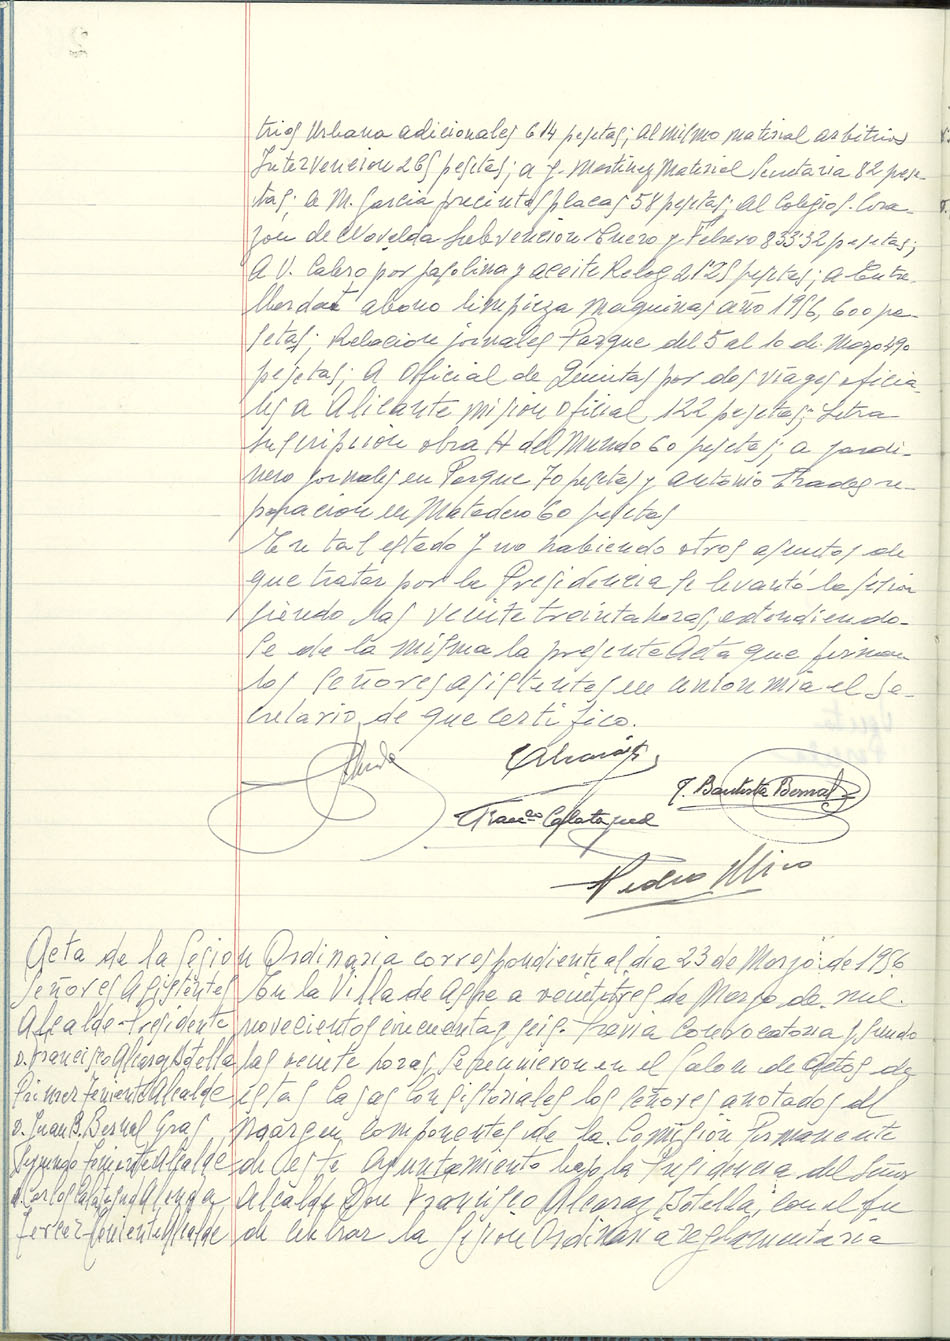 trios Urbana adicionales 614 pesetas; al mismo material arbitrios
Intervencion 265 pesetas; a J. Martinez Material Secretaria 82 pese-
tas; a M. Garcia precintos placas 58 pesetas; al Colegio S. Cora-
zon de Novelda Subvencion Enero y Febrero 833'32 pesetas;
a V. Calero por gasolina y aceite Reloz 21'25 pesetas; a
abono limpieza maquinas año 1956, 600 pe-
setas; Relacion jornales Parque del 5 al 10 de Marzo 390
pesetas; a Oficial de Quintas por dos viages oficia-
les a Alicante mision oficial, 122 pesetas; Letra
suscripcion obra H del Mundo 60 pesetas; a jardi-
nero jornales en Parque 70 pesetas y antonio Prades re-
paracion en Matadero 60 pesetas
En tal estado y no habiendo otros asuntos de
que tratar por la Presidencia se levantó la sesion
siendo las veinte treinta horas, extendiendo-
se de la misma la presente Acta que firman
los señores asistentes en union mia el Se-
cretario de que certifico.
Alcaraz
J. Bautista Bernal
Franco Calatayud
Pedro Miro
Acta de la Sesion Ordinaria correspondiente al dia 23 de Marzo de 1956
Señores Asistentes
Alcalde-Presidente
D. Francisco Alcaraz Botella
Primer Teniente Alcalde
D. Juan B. Bernal Gras
Segundo Teniente Alcalde
D. Carlos Calatayud Alenda
Tercer Teniente Alcalde
En la Villa de Aspe a veintitres de Marzo de mil
novecientos cincuenta y seis. Previa Convocatoria y siendo
las veinte horas, se reunieron en el Salon de Actos de
estas Casas Consistoriales los señores anotados al
margen componentes de la Comision Permanente
de este Ayuntamiento bajo la Presidencia del Señor
Alcalde Don Francisco Alcaraz Botella, con el fin
de celebrar la Sesion Ordinaria reglamentaria